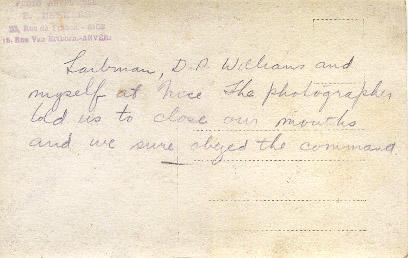 33, Rue de France - NICE
Rue Van Ertborn - ANVERS
Larbman, D.P. Williams and
myself at Nice The photographer
told us to close our mouths
and we sure obeyed the command.